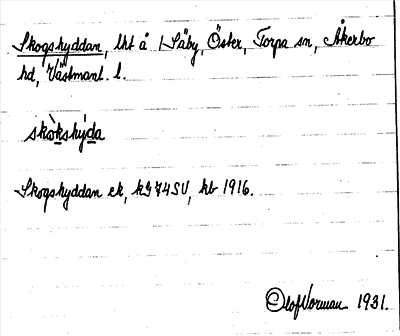 Skogshyddan, lht å 1 Säby, Öster, Torpa sn, Åkerbo
hd, Västmanl. l.
skòkshýda
Skogshyddan ek, kG 74 SV, kb 1916.
Olof Norman 1931.